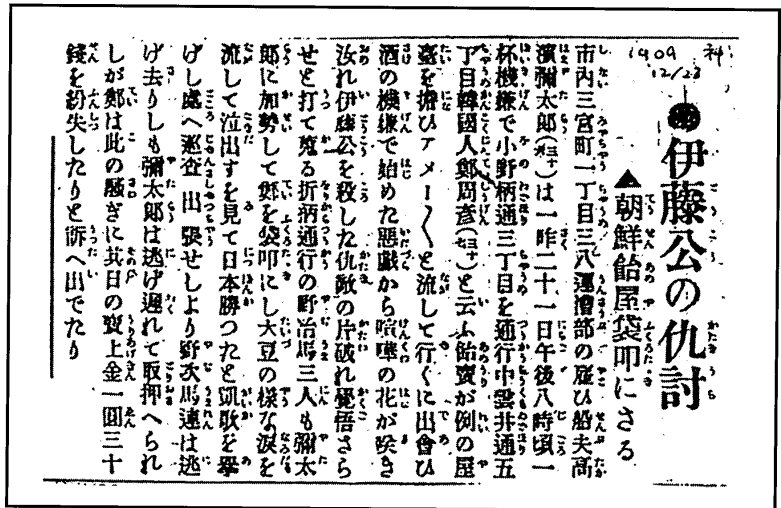 1909 神
12/23
●伊藤公の仇討
▲朝鮮飴屋袋叩にさる
市内三宮町一丁目三八運漕部の雇ひ船夫高
濱彌太郎(三十)は一昨二十一日午後八時頃一
杯機嫌で小野柄通三丁目を通行中雲井通五
丁目韓國人鄭周彦(三十)と云ふ飴賣が例の屋
臺を擔ひアメー〱と流して行くに出會ひ
酒の機嫌で始めた惡戯から喧嘩の花が咲き
汝れ伊藤公を殺した仇敵の片破れ覺悟さら
せと打て蒐る折柄通行の野治馬三人も彌太
郎に加勢して鄭を袋叩にし大豆の樣な涙を
流して泣出すを見て日本勝つたと凱歌を擧
げし處へ巡査出張せしより野次馬連は逃
げ去りしも彌太郎は逃げ遲れて取押へられ
しが鄭は此の騷ぎに其日の賣上金一圓三十
錢を紛失したりと訴へ出でたり